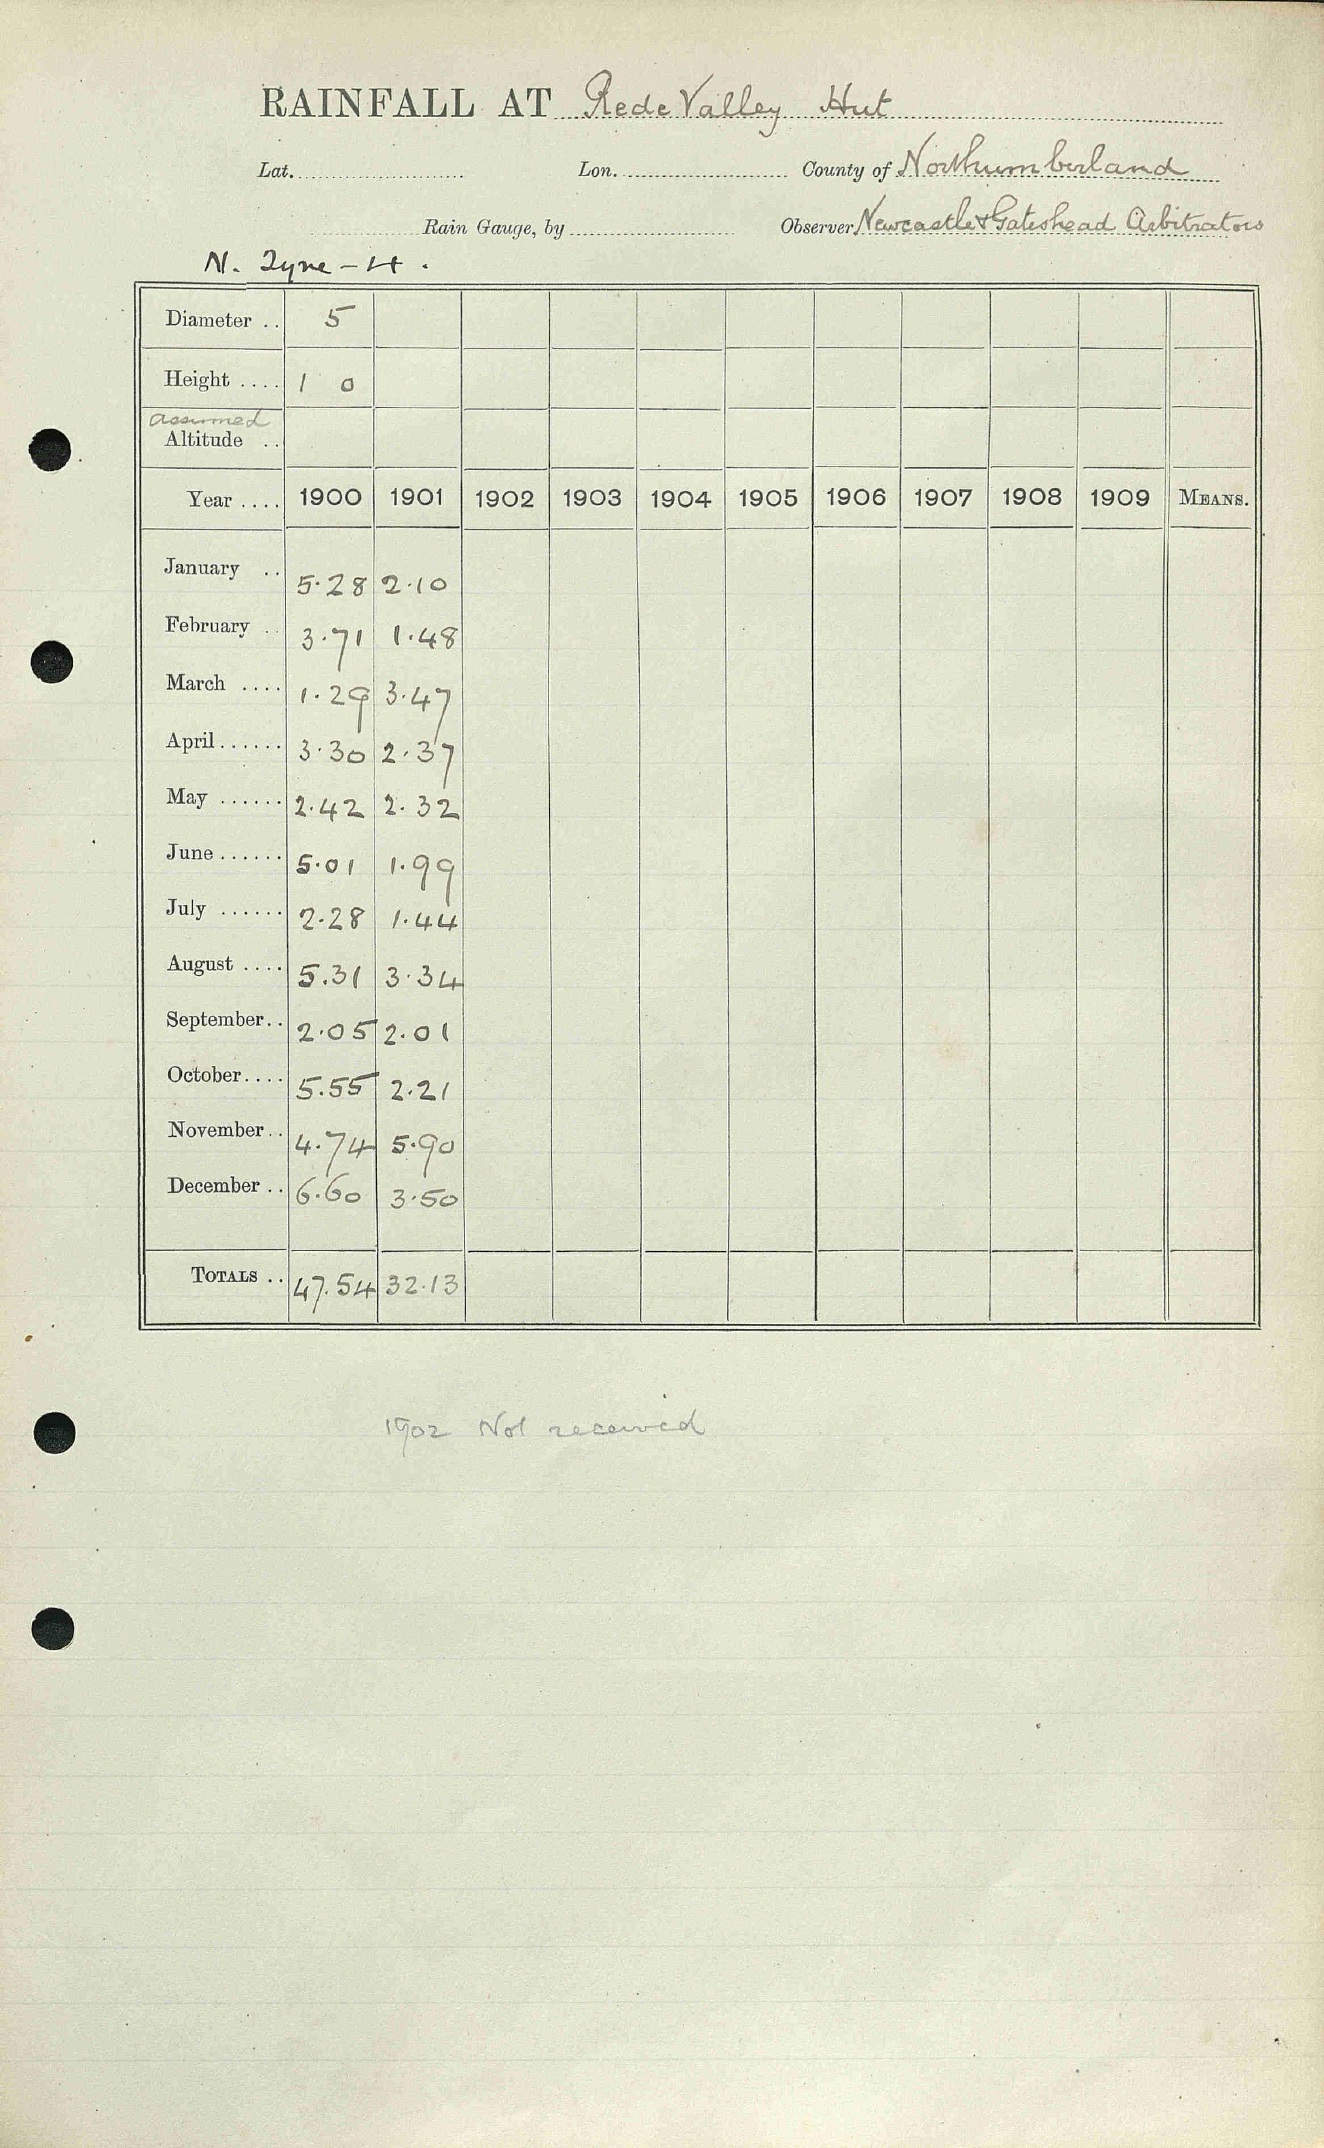 RAINFALL AT Rede Valley Hut
Lat. Lon. County of Northumberland
Rain Gauge, by Observer Newcastle & Gateshead Arbitrators
N. Tyne - 4.
Diameter .. 5
Height .... 1 0
assumed
Altitude ..
Year .... 1900 1901 1902 1903 1904 1905 1906 1907 1908 1909 MEANS.
January .. 5.28 2.10
February .. 3.71 1.48
March .... 1.29 3.47
April ...... 3.30 2.37
May ...... 2.42 2.32
June ...... 5.01 1.99
July ...... 2.28 1.44
August .... 5.31 3.34
September.. 2.05 2.01
October.... 5.55 2.21
November.. 4.74 5.90
December .. 6.60 3.50
TOTALS .. 47.54 32.13
1902 Not received